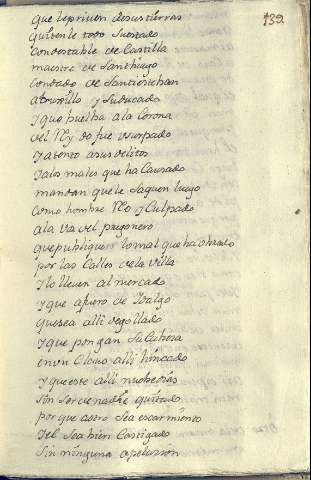 132.
que le priven de sus tierras
quitenle todo su estado
Condestable de Castilla
maestre de Santhiago
Condado de Santiestevan
a trusillo y su Ducado
y que buelba a la Corona
del Rey do fue usurpado
y atento a sus delitos
y a los males que ha Causado
mandan que le saquen luego
Como hombre Reo y Culpado
a la voz del pregonero
que publique lo mal que ha obrado
por las Calles de la Villa
y lo lleven al mercado
y que a fuero de Idalgo
que sea alli degollado
y que pongan su Cabeza
en un Clavo alli hincado
y que este alli nuebe dias
sin ser de nadie quitado
porque a otro sea escarmiento
y el sea bien Castigado
sin ninguna apelazion